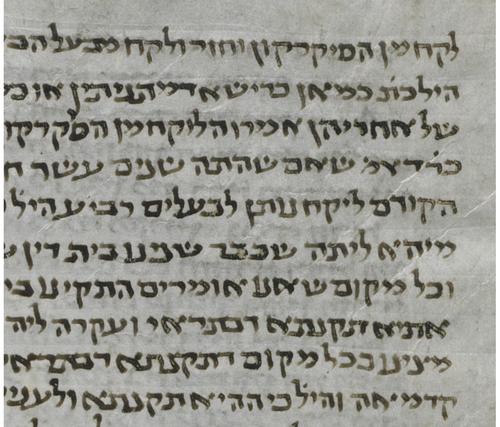 לקח מן הסיקריקון וחזר ולקח מבעל הבי
הילכת כמאן כרישא דמתניתין או כמ
של אחריהן אמרו הלוקח מן הסקריקו
שאם שהתה שנים עשר ח
הקודם ליקח נותן לבעלים רביע היל
ליתה שכבר שמע בית דין ש
וכל מקום שאנו אומרים התקינו בי
אתיא תקנתא דבתראי ועקרה ליה
בכל מקום דתקנתא דבתראי
קדמיאה והילכי ההיא תקנתא ולעניי